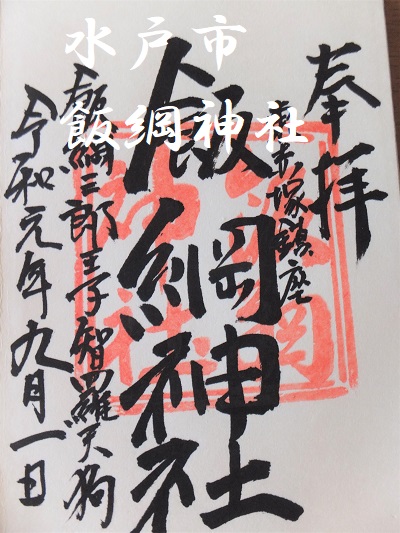 水戸市
飯綱神社
奉拝
赤塚鎮座
飯綱神社
飯綱三郎王子智羅天狗
令和元年九月一日